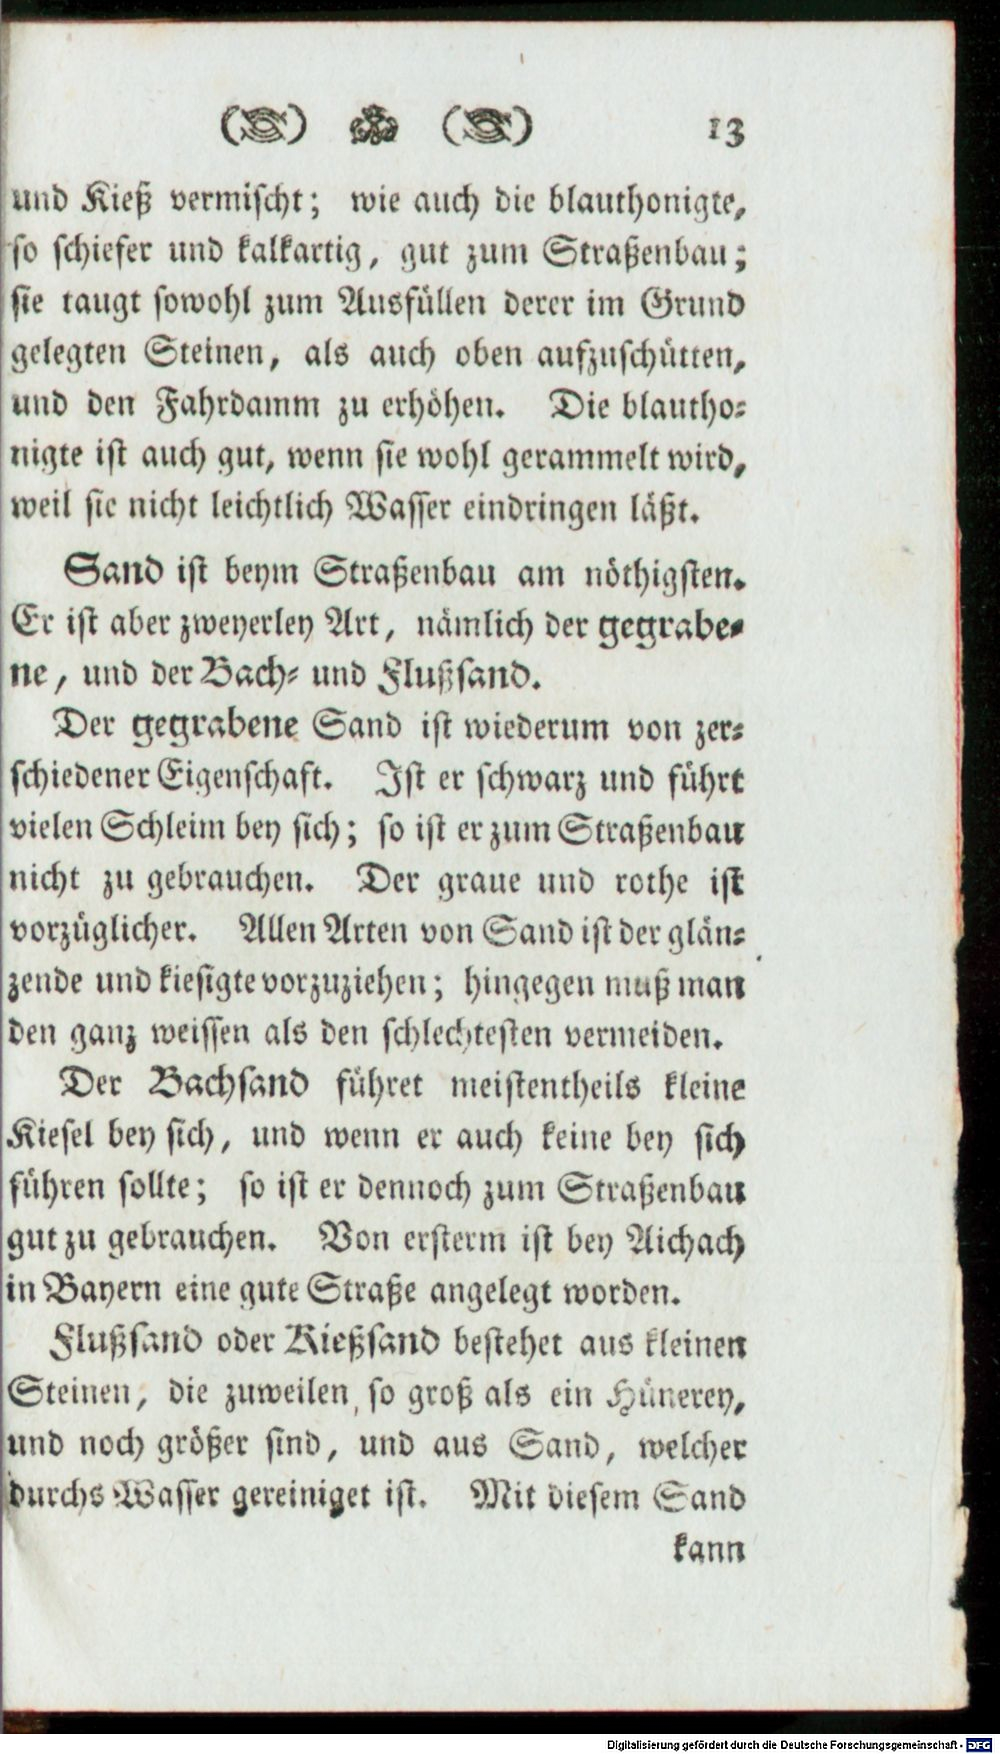 13
und Kieß vermischt; wie auch die blauthonigte,
so schiefer und kalkartig, gut zum Straßenbau;
sie taugt sowohl zum Ausfüllen derer im Grund
gelegten Steinen, als auch oben aufzuschütten,
und den Fahrdamm zu erhöhen. Die blautho-
nigte ist auch gut, wenn sie wohl gerammelt wird,
weil sie nicht leichtlich Wasser eindringen läßt.
Sand ist beym Straßenbau am nöthigsten.
Er ist aber zweyerley Art, nämlich der gegrabe-
ne, und der Bach- und Flußsand.
Der gegrabene Sand ist wiederum von zer-
schiedener Eigenschaft. Ist er schwarz und führt
vielen Schleim bey sich; so ist er zum Straßenbau
nicht zu gebrauchen. Der graue und rothe ist
vorzüglicher. Allen Arten von Sand ist der glän-
zende und kiesigte vorzuziehen; hingegen muß man
den ganz weissen als den schlechtesten vermeiden.
Der Bachsand führet meistentheils kleine
Kiesel bey sich, und wenn er auch keine bey sich
führen sollte; so ist er dennoch zum Straßenbau
gut zu gebrauchen. Von ersterm ist bey Aichach
in Bayern eine gute Straße angelegt worden.
Flußsand oder Kießsand bestehet aus kleinen
Steinen, die zuweilen so groß als ein Hünerey,
und noch größer sind, und aus Sand, welcher
durchs Wasser gereiniget ist. Mit diesem Sand
kann
Digitalisierung gefördert durch die Deutsche Forschungsgemeinschaft - DFG